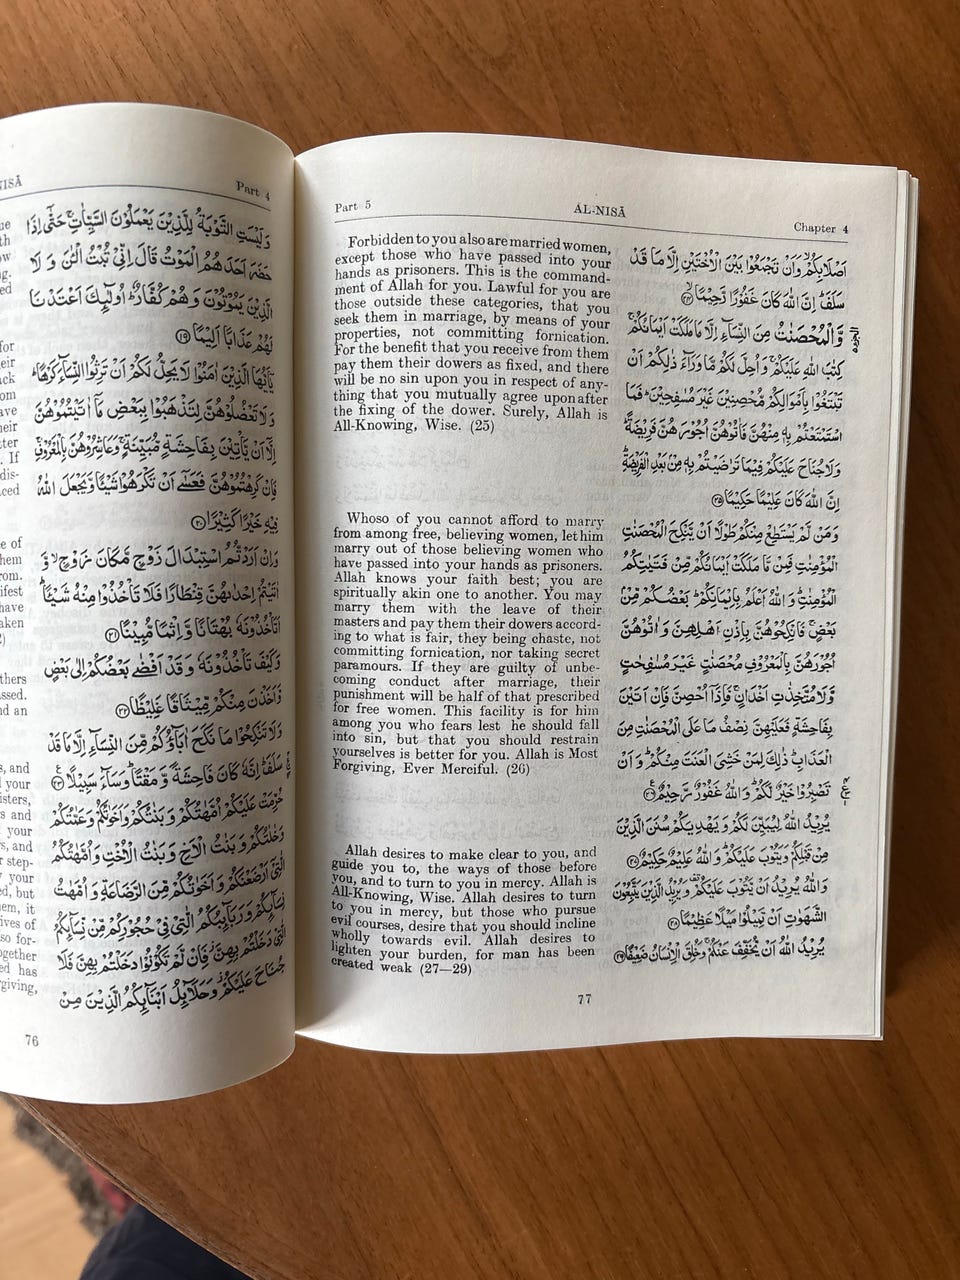 NISĀ
Part 4
for
dis-
of
have
taken
others
and an
s, and
your
s and
your
step-
your
but
it
so for-
has
giving,
وَلَيْسَتِ التَّوْبَةُ لِلَّذِيْنَ يَعْمَلُوْنَ السَّيِّاٰتِ ۚ حَتّٰٓى اِذَا
حَضَرَ اَحَدَهُمُ الْمَوْتُ قَالَ اِنِّيْ تُبْتُ الْـٰٔنَ وَ لَا
الَّذِيْنَ يَمُوْتُوْنَ وَ هُمْ كُفَّارٌ ؕ اُولٰٓئِكَ اَعْتَدْنَا
لَهُمْ عَذَابًا اَلِيْمًا ۝۱۹
يٰۤاَيُّهَا الَّذِيْنَ اٰمَنُوْا لَا يَحِلُّ لَكُمْ اَنْ تَرِثُوا النِّسَآءَ كَرْهًا ؕ
وَلَا تَعْضُلُوْهُنَّ لِتَذْهَبُوْا بِبَعْضِ مَاۤ اٰتَيْتُمُوْهُنَّ
اِلَّاۤ اَنْ يَّاْتِيْنَ بِفَاحِشَةٍ مُّبَيِّنَةٍ ۚ وَعَاشِرُوْهُنَّ بِالْمَعْرُوْفِ ۚ
فَاِنْ كَرِهْتُمُوْهُنَّ فَعَسٰۤى اَنْ تَكْرَهُوْا شَيْئًا وَّ يَجْعَلَ اللّٰهُ
فِيْهِ خَيْرًا كَثِيْرًا ۝۲۰
وَاِنْ اَرَدْتُّمُ اسْتِبْدَالَ زَوْجٍ مَّكَانَ زَوْجٍ ۙ وَّ
اٰتَيْتُمْ اِحْدٰىهُنَّ قِنْطَارًا فَلَا تَاْخُذُوْا مِنْهُ شَيْئًا ؕ
اَتَاْخُذُوْنَهٗ بُهْتَانًا وَّاِثْمًا مُّبِيْنًا ۝۲۱
وَكَيْفَ تَاْخُذُوْنَهٗ وَ قَدْ اَفْضٰى بَعْضُكُمْ اِلٰى بَعْضٍ
وَّاَخَذْنَ مِنْكُمْ مِّيْثَاقًا غَلِيْظًا ۝۲۲
وَلَا تَنْكِحُوْا مَا نَكَحَ اٰبَآؤُكُمْ مِّنَ النِّسَآءِ اِلَّا مَا قَدْ
سَلَفَ ؕ اِنَّهٗ كَانَ فَاحِشَةً وَّ مَقْتًا ؕ وَسَآءَ سَبِيْلًا ۝۲۳
حُرِّمَتْ عَلَيْكُمْ اُمَّهٰتُكُمْ وَ بَنٰتُكُمْ وَ اَخَوٰتُكُمْ وَعَمّٰتُكُمْ
وَخٰلٰتُكُمْ وَ بَنٰتُ الْاَخِ وَ بَنٰتُ الْاُخْتِ وَ اُمَّهٰتُكُمُ
الّٰتِيْۤ اَرْضَعْنَكُمْ وَ اَخَوٰتُكُمْ مِّنَ الرَّضَاعَةِ وَ اُمَّهٰتُ
نِسَآئِكُمْ وَ رَبَآئِبُكُمُ الّٰتِيْ فِيْ حُجُوْرِكُمْ مِّنْ نِّسَآئِكُمُ
الّٰتِيْ دَخَلْتُمْ بِهِنَّ ۫ فَاِنْ لَّمْ تَكُوْنُوْا دَخَلْتُمْ بِهِنَّ فَلَا
جُنَاحَ عَلَيْكُمْ ۫ وَحَلَآئِلُ اَبْنَآئِكُمُ الَّذِيْنَ مِنْ
76
Part 5
AL-NISĀ
Chapter 4
Forbidden to you also are married women,
except those who have passed into your
hands as prisoners. This is the command-
ment of Allah for you. Lawful for you are
those outside these categories, that you
seek them in marriage, by means of your
properties, not committing fornication.
For the benefit that you receive from them
pay them their dowers as fixed, and there
will be no sin upon you in respect of any-
thing that you mutually agree upon after
the fixing of the dower. Surely, Allah is
All-Knowing, Wise. (25)
Whoso of you cannot afford to marry
from among free, believing women, let him
marry out of those believing women who
have passed into your hands as prisoners.
Allah knows your faith best; you are
spiritually akin one to another. You may
marry them with the leave of their
masters and pay them their dowers accord-
ing to what is fair, they being chaste, not
committing fornication, nor taking secret
paramours. If they are guilty of unbe-
coming conduct after marriage, their
punishment will be half of that prescribed
for free women. This facility is for him
among you who fears lest he should fall
into sin, but that you should restrain
yourselves is better for you. Allah is Most
Forgiving, Ever Merciful. (26)
Allah desires to make clear to you, and
guide you to, the ways of those before
you, and to turn to you in mercy. Allah is
All-Knowing, Wise. Allah desires to turn
to you in mercy, but those who pursue
evil courses, desire that you should incline
wholly towards evil. Allah desires to
lighten your burden, for man has been
created weak (27—29)
اَصْلَابِكُمْ ۙ وَاَنْ تَجْمَعُوْا بَيْنَ الْاُخْتَيْنِ اِلَّا مَا قَدْ
سَلَفَ ؕ اِنَّ اللّٰهَ كَانَ غَفُوْرًا رَّحِيْمًا ۝۲۴
وَّالْمُحْصَنٰتُ مِنَ النِّسَآءِ اِلَّا مَا مَلَكَتْ اَيْمَانُكُمْ ۚ
كِتٰبَ اللّٰهِ عَلَيْكُمْ ۚ وَاُحِلَّ لَكُمْ مَّا وَرَآءَ ذٰلِكُمْ اَنْ
تَبْتَغُوْا بِاَمْوَالِكُمْ مُّحْصِنِيْنَ غَيْرَ مُسٰفِحِيْنَ ؕ فَمَا
اسْتَمْتَعْتُمْ بِهٖ مِنْهُنَّ فَاٰتُوْهُنَّ اُجُوْرَهُنَّ فَرِيْضَةً ؕ
وَلَا جُنَاحَ عَلَيْكُمْ فِيْمَا تَرٰضَيْتُمْ بِهٖ مِنْۢ بَعْدِ الْفَرِيْضَةِ ؕ
اِنَّ اللّٰهَ كَانَ عَلِيْمًا حَكِيْمًا ۝۲۵
وَمَنْ لَّمْ يَسْتَطِعْ مِنْكُمْ طَوْلًا اَنْ يَّنْكِحَ الْمُحْصَنٰتِ
الْمُؤْمِنٰتِ فَمِنْ مَّا مَلَكَتْ اَيْمَانُكُمْ مِّنْ فَتَيٰتِكُمُ
الْمُؤْمِنٰتِ ؕ وَ اللّٰهُ اَعْلَمُ بِاِيْمَانِكُمْ ؕ بَعْضُكُمْ مِّنْۢ
بَعْضٍ ۚ فَانْكِحُوْهُنَّ بِاِذْنِ اَهْلِهِنَّ وَ اٰتُوْهُنَّ
اُجُوْرَهُنَّ بِالْمَعْرُوْفِ مُحْصَنٰتٍ غَيْرَ مُسٰفِحٰتٍ
وَّلَا مُتَّخِذٰتِ اَخْدَانٍ ۚ فَاِذَاۤ اُحْصِنَّ فَاِنْ اَتَيْنَ
بِفَاحِشَةٍ فَعَلَيْهِنَّ نِصْفُ مَا عَلَى الْمُحْصَنٰتِ مِنَ
الْعَذَابِ ؕ ذٰلِكَ لِمَنْ خَشِيَ الْعَنَتَ مِنْكُمْ ؕ وَ اَنْ
تَصْبِرُوْا خَيْرٌ لَّكُمْ ؕ وَاللّٰهُ غَفُوْرٌ رَّحِيْمٌ ۝۲۶
يُرِيْدُ اللّٰهُ لِيُبَيِّنَ لَكُمْ وَ يَهْدِيَكُمْ سُنَنَ الَّذِيْنَ
مِنْ قَبْلِكُمْ وَيَتُوْبَ عَلَيْكُمْ ؕ وَاللّٰهُ عَلِيْمٌ حَكِيْمٌ ۝۲۷
وَاللّٰهُ يُرِيْدُ اَنْ يَّتُوْبَ عَلَيْكُمْ ۟ وَ يُرِيْدُ الَّذِيْنَ يَتَّبِعُوْنَ
الشَّهَوٰتِ اَنْ تَمِيْلُوْا مَيْلًا عَظِيْمًا ۝۲۸
يُرِيْدُ اللّٰهُ اَنْ يُّخَفِّفَ عَنْكُمْ ۚ وَخُلِقَ الْاِنْسَانُ ضَعِيْفًا ۝۲۹
77